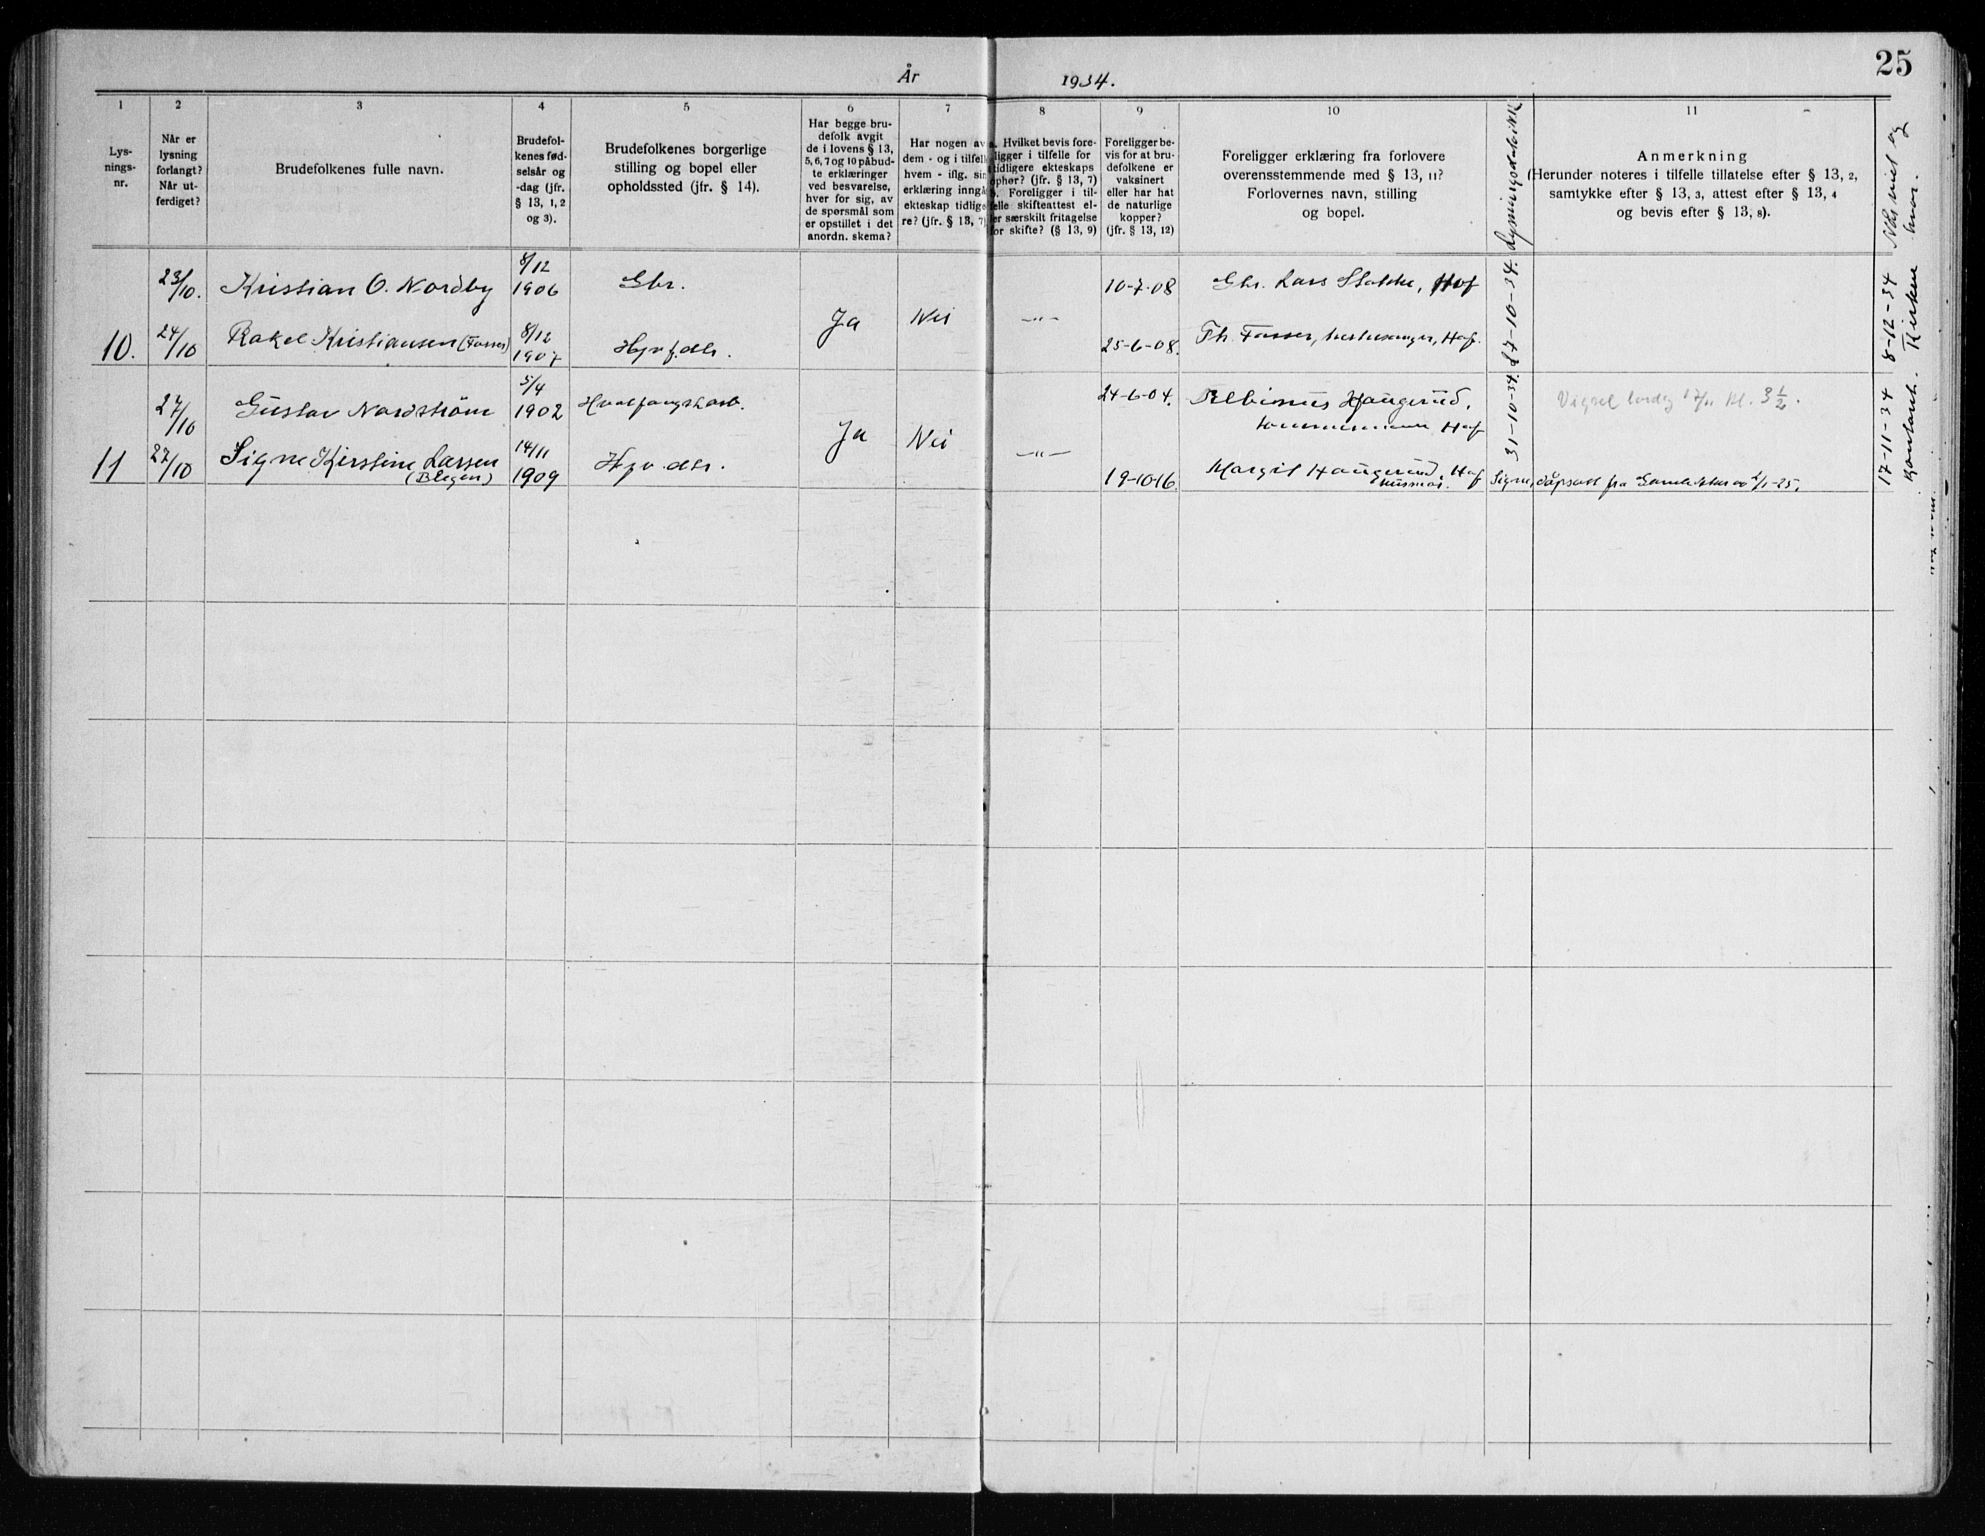 År 1934.
25
1 2 3 4 5 6 7 8 9 10 11
Lys-
nings-
nr.
Når er
lysning
forlangt?
Når ut-
ferdiget?
Brudefolkenes fulle navn.
Brudefol-
kenes fød-
selsår og
-dag (jfr.
§ 13, 1, 2
og 3).
Brudefolkenes borgerlige
stilling og bopel eller
opholdssted (jfr. § 14).
Har begge bru-
defolk avgit
de i lovens § 13,
5, 6, 7 og 10 påbud-
te erklæringer
ved besvarelse,
hver for sig, av
de spørsmål som
er opstillet i det
anordn. skema?
Har nogen av
dem - og i tilfell
hvem - iflg. sin
erklæring inngå
ekteskap tidlig
re? (jfr. § 13, 7)
a. Hvilket bevis fore-
ligger i tilfelle for
tidligere ekteskaps
ophør? (jfr. § 13, 7)
b. Foreligger i til-
felle skifteattest el-
ler særskilt fritagelse
for skifte? (§ 13, 9)
Foreligger be-
vis for at bru-
defolkene er
vaksinert
eller har hat
de naturlige
kopper?
(jfr. § 13, 12)
Foreligger erklæring fra forlovere
overensstemmende med § 13, 11?
Forlovernes navn, stilling
og bopel.
Anmerkning
(Herunder noteres i tilfelle tillatelse efter § 13, 2,
samtykke efter § 13, 3, attest efter § 13, 4
og bevis efter § 13, 8).
Når viet og
hvor.
23/10. Kristian O. Nordby 8/12 1906 Gbr. Ja Nei -"- 10-7-08 Gbr. Lars Stokke, Hof 27-10-34. 8-12-34 Kirken
10. 24/10 Rakel Kristiansen (Fosser) 8/12 1907 Hjv. f. dtr. 25-6-08. Th. Fosser, Hof.
27/10 Gustav Nordstrøm 5/4 1902 Hvalfangstarb. Ja Nei -"- 24-6-04. Albinus Haugerud, Hof 31-10-34. Vigsel lørdag 17/11 kl. 3 1/2. 17-11-34
11 27/10 Signe Kirstine Larsen (Blegen) 14/11 1909 Hjv. dtr. 19-10-16. Margit Haugerud, Hof
husmor. Signe, dåpsatt fra